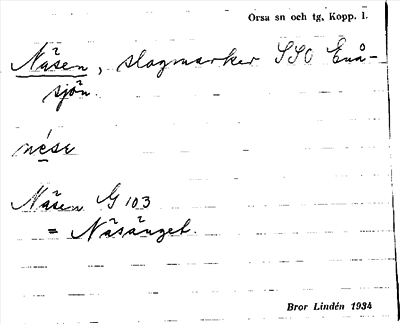 Orsa sn och tg, Kopp. l.
Näsen, slogmarker SSO Enå-
sjön.
nése
Näsen G 103
= Näsänget.
Bror Lindén 1934